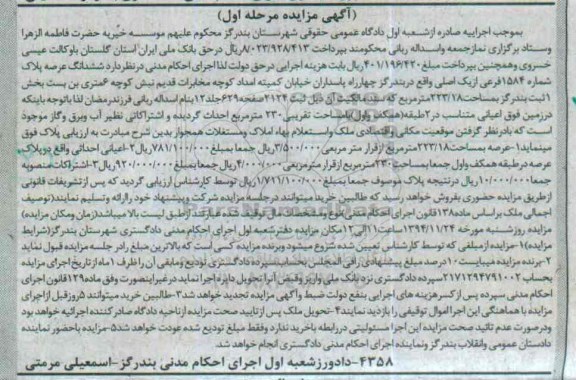 (آگهی مزایده مرحله اول)
بموجب اجراییه صادره ازشعبه اول دادگاه عمومی حقوقی شهرستان بندرگز محکوم علیهم موسسه خیریه حضرت فاطمه الزهرا
وستاد برگزاری نمازجمعه واسداله ربانی محکومند بپرداخت ۸/۰۲۳/۹۲۸/۴۱۳ریال درحق بانک ملی ایران استان گلستان باوکالت عیسی
خسروی وهمچنین بپرداخت مبلغ ۴۰۱/۱۹۶/۴۲۰ریال بابت هزینه اجرایی درحق دولت لذا اجرای احکام مدنی درنظردارد ششدانگ عرصه پلاک
شماره ۱۵۸۴ فرعی ازیک اصلی واقع دربندرگز چهارراه پاسداران خیابان کمیته امداد کوچه مخابرات قدیم نبش کوچه ۶متری بن بست بخش
۱ثبت بندرگز بمساحت۲۲۳/۱۸مترمربع که سندمالکیت آن ذیل ثبت ۴۱۲۴صفحه۶۲۹جلد۱۲بنام اسداله ربانی فرزندرمضان لذا باتوجه باینکه
درزمین فوق اعیانی متناسب در۲طبقه(همکف واول)بامساحت تقریبی۲۳۰مترمربع احداث گردیده و اشتراکاتی نظیر آب وبرق وگاز موجود
است که بادرنظر گرفتن موقعیت مکانی واقتصادی ملک واستعلام بهاء املاک ومستغلات همجوار بدین شرح مبادرت به ارزیابی پلاک فوق
مینماید۱-عرصه بمساحت۲۲۳/۱۸مترمربع ازقرار متر مربعی ۳/۵۰۰/۰۰۰ریال جمعا بمبلغ ۷۸۱/۱۰۰/۰۰۰ریال۲-اعیانی احداثی واقع درپلاک
عرصه درطبقه همکف واول جمعا بمساحت۲۳۰مترمربع ازقرار مترمربعی ۴/۰۰۰/۰۰۰ریال جمعا بمبلغ ۹۲۰/۰۰۰/۰۰۰ریال۳-اشتراکات منصوبه
جمعا۱۰/۰۰۰/۰۰۰ریال درنتیجه پلاک موصوف جمعا بمبلغ ۱/۷۱۱/۱۰۰/۰۰۰ریال توسط کارشناس ارزیابی گردید که پس ازتشریفات قانونی
ازطریق مزایده حضوری بفروش خواهد رسید که طالبین خرید میتوانند درجلسه مزایده شرکت وپیشنهاد خود را ارائه وتسلیم نمایند(توصیف
اجمالی ملک براساس ماده۱۳۸قانون اجرای احکام مدنی نوع ومشخصات مال توقیف شده عبارتند ازطبق لیست بالا میباشد(زمان ومکان مزایده)
مزایده روزشنبه مورخه ۱۳۹۴/۱۱/۲۴ ساعت۱۱الی۱۲مکان مزایده دفترشعبه اول اجرای احکام مدنی دادگستری شهرستان بندرگز(شرایط
مزایده)۱-مزایده ازمبلغی که توسط کارشناس تعیین شده شروع میشود وبرنده مزایده کسی است که بالاترین مبلغ رادر جلسه مزایده قبول نماید
۲-برنده مزایده میبایست ۱۰درصد مبلغ پیشنهادی رافی المجلس بحساب سپرده دادگستری تودیع ومابقی آن راظرف ۱ماه ازتاریخ اجرای مزایده
بحساب ۲۱۷۱۲۹۴۷۹۱۰۰۲سپرده دادگستری نزد بانک ملی واریزوفیش آنرا تحویل دایره اجرا نماید درغیراینصورت وفق ماده۱۲۹قانون اجرای
احکام مدنی سپرده پس از کسرهزینه های اجرایی بنفع دولت ضبط وآگهی مزایده تجدید خواهد شد۳-طالبین خرید میتوانند ۵روزقبل ازاجرای
مزایده با هماهنگی این اجرا اموال توقیفی را بازدید نمایند۴-تحویل ملک پس از تایید صحت مزایده ازناحیه دادگاه صادر کننده اجرائیه خواهد بود
ودرصورت عدم تائید صحت مزایده این اجرا مسئولیتی دررابطه باخرید ندارد وفقط مبلغ تودیع شده عودت خواهد شد۵-مزایده باحضور نماینده
دادستان عمومی وانقلاب بندرگز ونماینده اجرای احکام مدنی دادگستری انجام خواهد شد.
۴۳۵۸-دادورزشعبه اول اجرای احکام مدنی بندرگز-اسمعیلی مرمتی